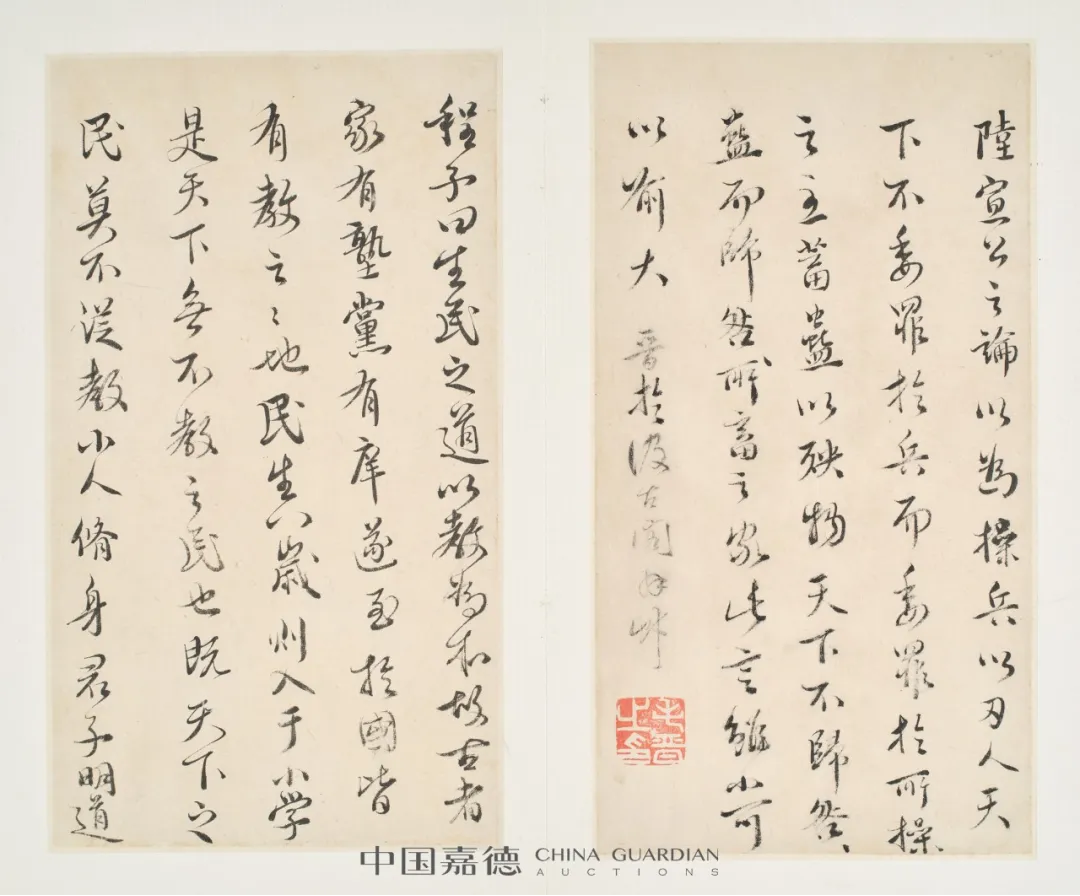 陸宣公之論以為操兵以刃人天
下不委罪於兵而委罪於所操
之主蓄蠱以殃物天下不歸咎
蠱而歸咎所蓄之家此言雖小可
以喻大 晉於汲古閣
毛晉之印
程子曰生民之道以教為本故古者
家有塾黨有庠遂至於國皆
有教之〻地民生八歲則入于小學
是天下無不教之民也既天下之
民莫不從教小人脩身君子明道
中国嘉德 CHINA GUARDIAN AUCTIONS